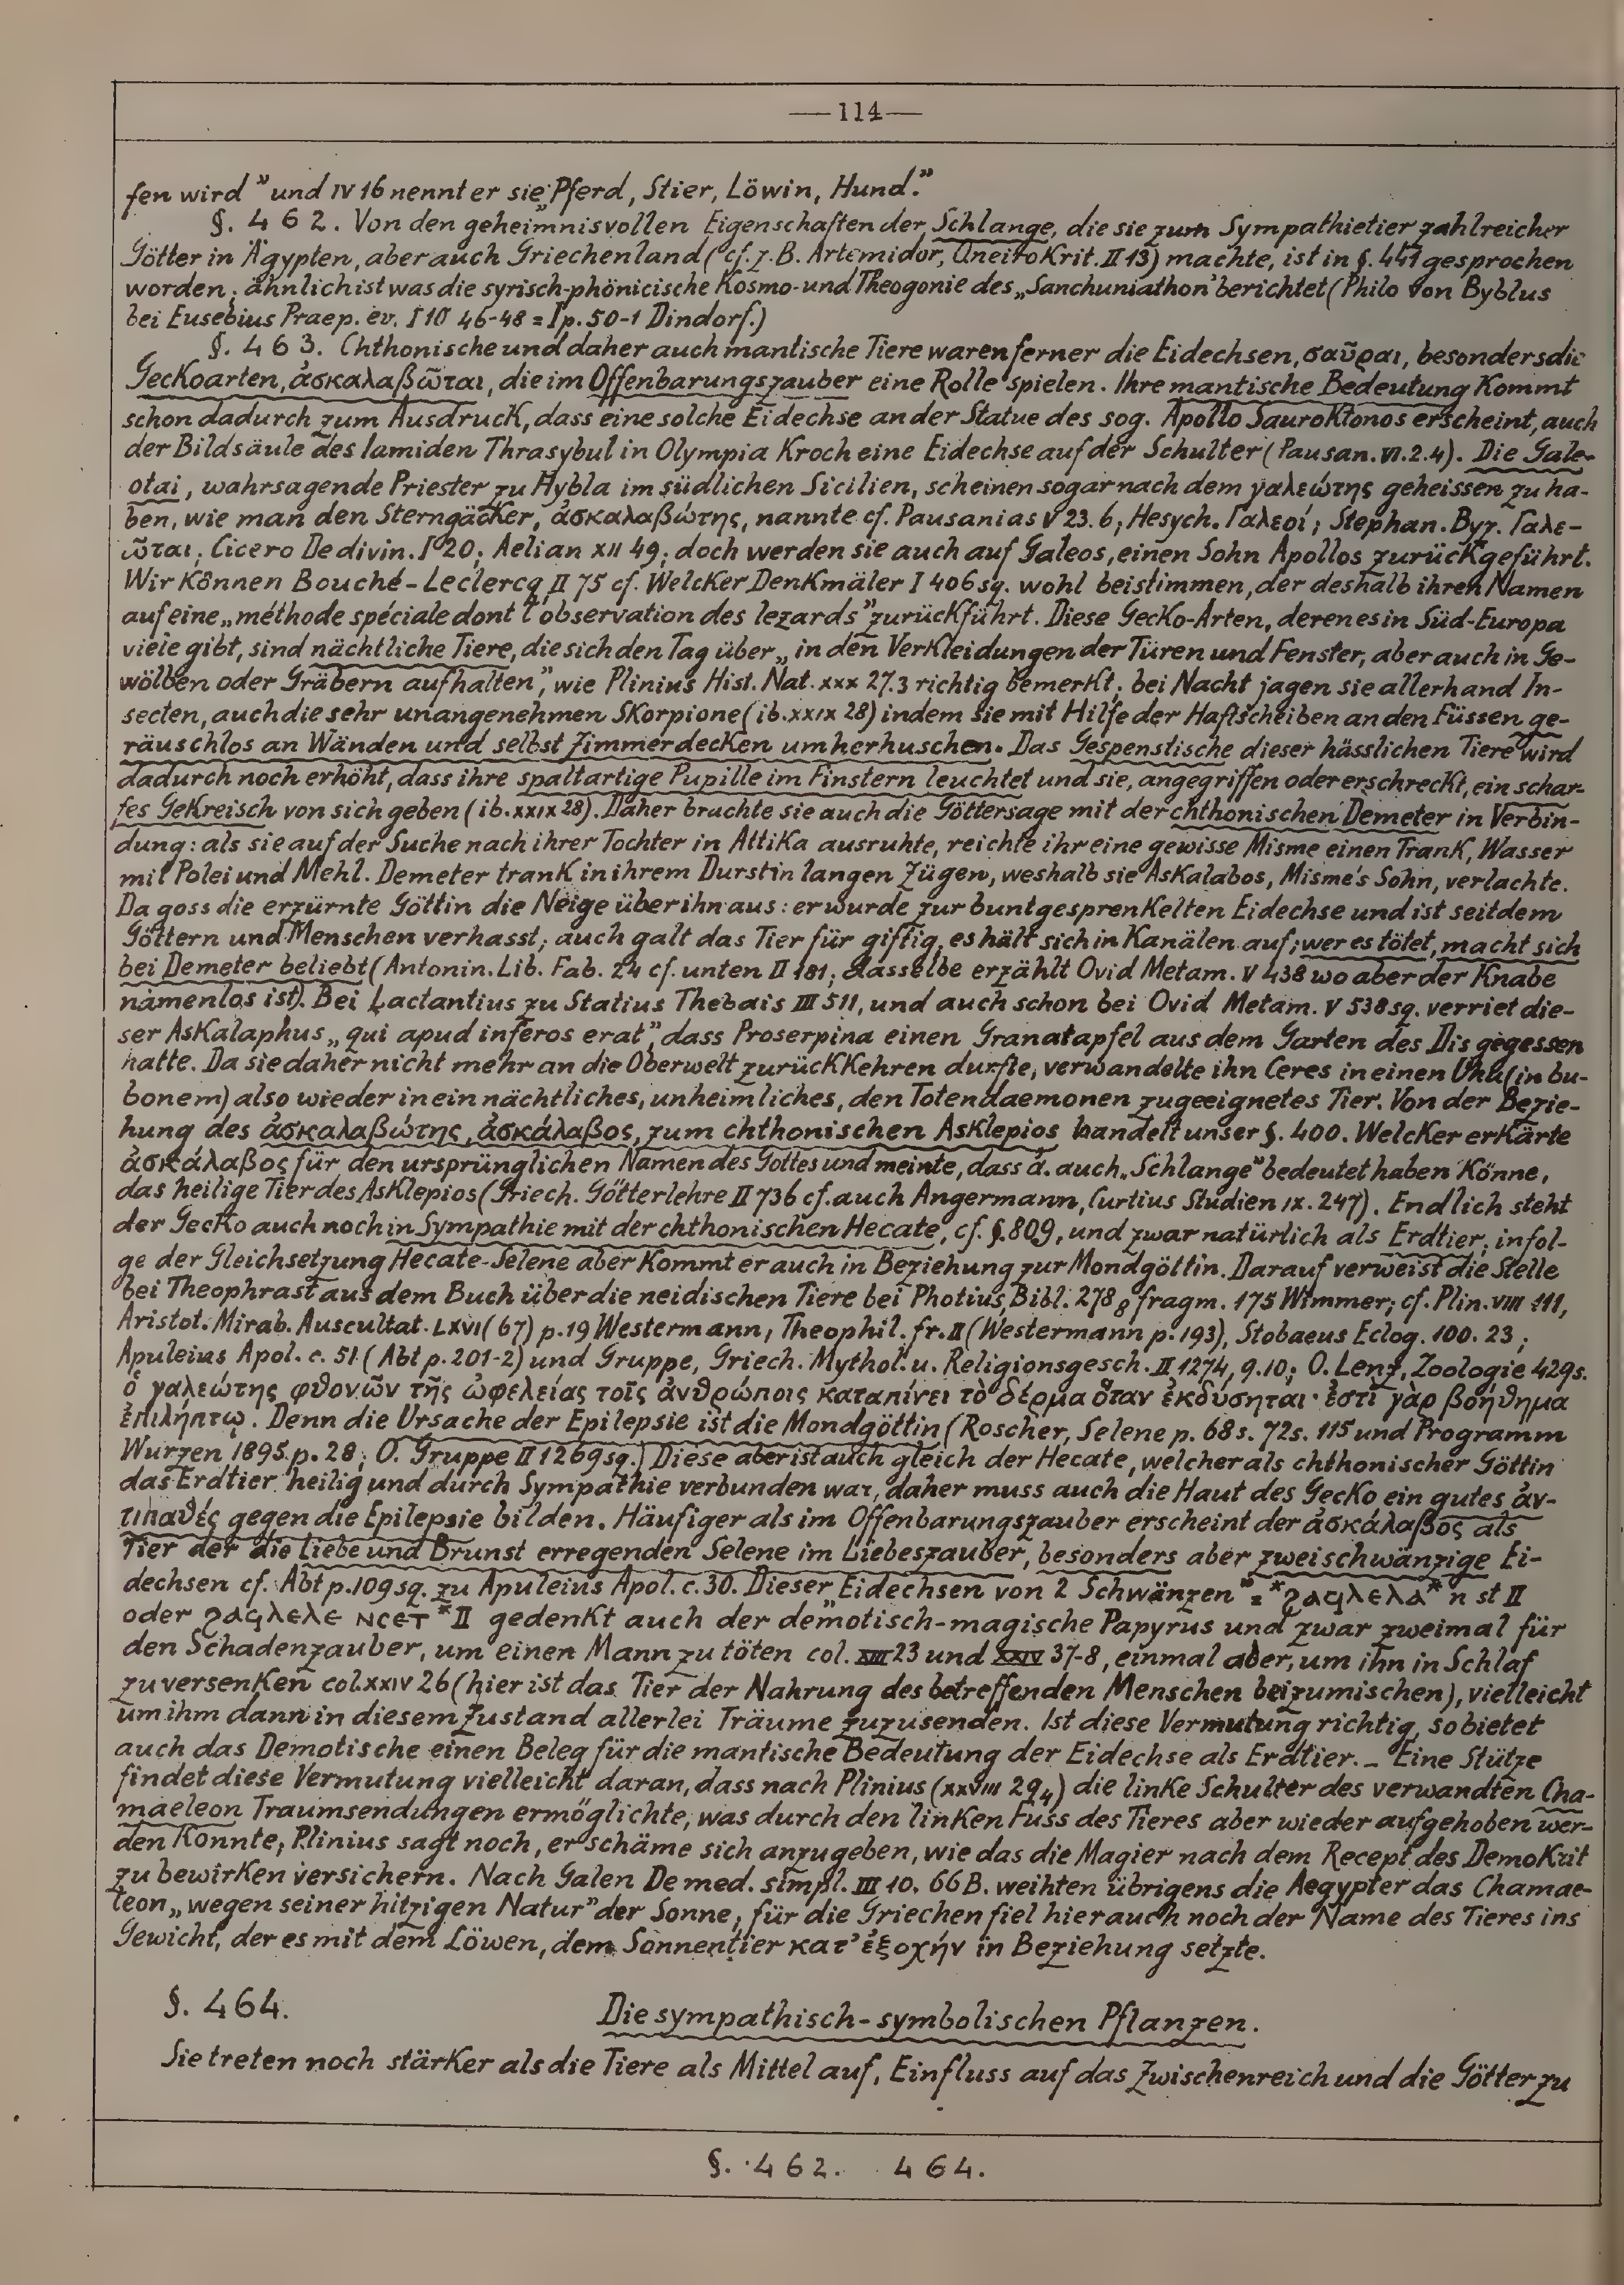 —114—
fen wird” und IV 16 nennt er sie „Pferd, Stier, Löwin, Hund.”
§. 462. Von den geheimnisvollen Eigenschaften der Schlange, die sie zum Sympathietier zahlreicher
Götter in Ägypten, aber auch Griechenland (cf. z. B. Artemidor, Oneirokrit. II 13) machte, ist in §. 447 gesprochen
worden; ähnlich ist was die syrisch-phönicische Kosmo- und Theogonie des „Sanchuniathon” berichtet (Philo von Byblus
bei Eusebius Praep. ev. I 10 46-48 = I p. 50-1 Dindorf.)
§. 463. Chthonische und daher auch mantische Tiere waren ferner die Eidechsen, σαῦραι, besonders die
Geckoarten, ἀσκαλαβῶται, die im Offenbarungszauber eine Rolle spielen. Ihre mantische Bedeutung kommt
schon dadurch zum Ausdruck, dass eine solche Eidechse an der Statue des sog. Apollo Sauroktonos erscheint, auch
der Bildsäule des Iamiden Thrasybul in Olympia kroch eine Eidechse auf der Schulter (Pausan. VI. 2. 4). Die Gale-
otai, wahrsagende Priester zu Hybla im südlichen Sicilien, scheinen sogar nach dem γαλεώτης geheissen zu ha-
ben, wie man den Sterngäcker, ἀσκαλαβώτης, nannte cf. Pausanias V 23. 6; Hesych. Γαλεοί; Stephan. Byz. Γαλε-
ῶται; Cicero De divin. I 20; Aelian XII 49; doch werden sie auch auf Galeos, einen Sohn Apollos zurückgeführt.
Wir können Bouché-Leclercq II 75 cf. Welcker Denkmäler I 406 sq. wohl beistimmen, der deshalb ihren Namen
auf eine „méthode spéciale dont l'observation des lezards” zurückführt. Diese Gecko-Arten, deren es in Süd-Europa
viele gibt, sind nächtliche Tiere, die sich den Tag über „in den Verkleidungen der Türen und Fenster, aber auch in Ge-
wölben oder Gräbern aufhalten”, wie Plinius Hist. Nat. XXX 27. 3 richtig bemerkt; bei Nacht jagen sie allerhand In-
secten, auch die sehr unangenehmen Skorpione (ib. XXIX 28) indem sie mit Hilfe der Haftscheiben an den Füssen ge-
räuschlos an Wänden und selbst Zimmerdecken umherhuschen. Das Gespenstische dieser hässlichen Tiere wird
dadurch noch erhöht, dass ihre spaltartige Pupille im Finstern leuchtet und sie, angegriffen oder erschreckt, ein schar-
fes Gekreisch von sich geben (ib. XXIX 28). Daher brachte sie auch die Göttersage mit der chthonischen Demeter in Verbin-
dung: als sie auf der Suche nach ihrer Tochter in Attika ausruhte, reichte ihr eine gewisse Misme einen Trank, Wasser
mit Polei und Mehl. Demeter trank in ihrem Durst in langen Zügen, weshalb sie Askalabos, Misme's Sohn, verlachte.
Da goss die erzürnte Göttin die Neige über ihn aus: er wurde zur buntgesprenkelten Eidechse und ist seitdem
Göttern und Menschen verhasst; auch galt das Tier für giftig, es hält sich in Kanälen auf; wer es tötet, macht sich
bei Demeter beliebt (Antonin. Lib. Fab. 24 cf. unten II 181; dasselbe erzählt Ovid Metam. V 438 wo aber der Knabe
namenlos ist). Bei Lactantius zu Statius Thebais III 511, und auch schon bei Ovid Metam. V 538 sq. verriet die-
ser Askalaphus „qui apud inferos erat”, dass Proserpina einen Granatapfel aus dem Garten des Dis gegessen
hatte. Da sie daher nicht mehr an die Oberwelt zurückkehren durfte, verwandelte ihn Ceres in einen Uhu (in bu-
bonem) also wieder in ein nächtliches, unheimliches, den Totendaemonen zugeeignetes Tier. Von der Bezie-
hung des ἀσκαλαβώτης, ἀσκάλαβος, zum chthonischen Asklepios handelt unser §. 400. Welcker erkärte
ἀσκάλαβος für den ursprünglichen Namen des Gottes und meinte, dass ἀ. auch „Schlange” bedeutet haben könne,
das heilige Tier des Asklepios (Griech. Götterlehre II 736 cf. auch Angermann, Curtius Studien IX. 247). Endlich steht
der Gecko auch noch in Sympathie mit der chthonischen Hecate, cf. §. 809, und zwar natürlich als Erdtier; infol-
ge der Gleichsetzung Hecate-Selene aber kommt er auch in Beziehung zur Mondgöttin. Darauf verweist die Stelle
bei Theophrast aus dem Buch über die neidischen Tiere bei Photius, Bibl. 278 8 fragm. 175 Wimmer; cf. Plin. VIII 111,
Aristot. Mirab. Auscultat. LXVI (67) p. 19 Westermann, Theophil. fr. II (Westermann p. 193), Stobaeus Eclog. 100. 23;
Apuleius Apol. c. 51 (Abt p. 201-2) und Gruppe, Griech. Mythol. u. Religionsgesch. II 1274, 9. 10; O. Lenz, Zoologie 429 s.
ὁ γαλεώτης φθονῶν τῆς ὠφελείας τοῖς ἀνθρώποις καταπίνει τὸ δέρμα ὅταν ἐκδύσηται· ἐστὶ γὰρ βοήθημα
ἐπιλήπτῳ. Denn die Ursache der Epilepsie ist die Mondgöttin (Roscher, Selene p. 68 s. 72 s. 115 und Programm
Wurzen 1895 p. 28; O. Gruppe II 1269 sq.) Diese aber ist auch gleich der Hecate, welcher als chthonischer Göttin
das Erdtier heilig und durch Sympathie verbunden war, daher muss auch die Haut des Gecko ein gutes ἀν-
τιπαθές gegen die Epilepsie bilden. Häufiger als im Offenbarungszauber erscheint der ἀσκάλαβος als
Tier der die Liebe und Brunst erregenden Selene im Liebeszauber, besonders aber zweischwänzige Ei-
dechsen cf. Abt p. 109 sq. zu Apuleius Apol. c. 30. Dieser „Eidechsen von 2 Schwänzen” = *ϩⲁϥⲗⲉⲗⲁ* n st II
oder ϩⲁϥⲗⲉⲗⲉ ⲛⲥⲉⲧ * II gedenkt auch der demotisch-magische Papyrus und zwar zweimal für
den Schadenzauber, um einen Mann zu töten col. XIII 23 und XXIV 37-8, einmal aber, um ihn in Schlaf
zu versenken col. XXIV 26 (hier ist das Tier der Nahrung des betreffenden Menschen beizumischen), vielleicht
um ihm dann in diesem Zustand allerlei Träume zuzusenden. Ist diese Vermutung richtig, so bietet
auch das Demotische einen Beleg für die mantische Bedeutung der Eidechse als Erdtier. – Eine Stütze
findet diese Vermutung vielleicht daran, dass nach Plinius (XXVIII 29 4) die linke Schulter des verwandten Cha-
maeleon Traumsendungen ermöglichte, was durch den linken Fuss des Tieres aber wieder aufgehoben wer-
den konnte; Plinius sagt noch, er schäme sich anzugeben, wie das die Magier nach dem Recept des Demokrit
zu bewirken versichern. Nach Galen De med. simpl. III 10. 66 B. weihten übrigens die Aegypter das Chamae-
leon „wegen seiner hitzigen Natur” der Sonne; für die Griechen fiel hier auch noch der Name des Tieres ins
Gewicht, der es mit dem Löwen, dem Sonnentier κατ’ ἐξοχήν in Beziehung setzte.
§. 464. Die sympathisch-symbolischen Pflanzen.
Sie treten noch stärker als die Tiere als Mittel auf, Einfluss auf das Zwischenreich und die Götter zu
§. 462. 464.